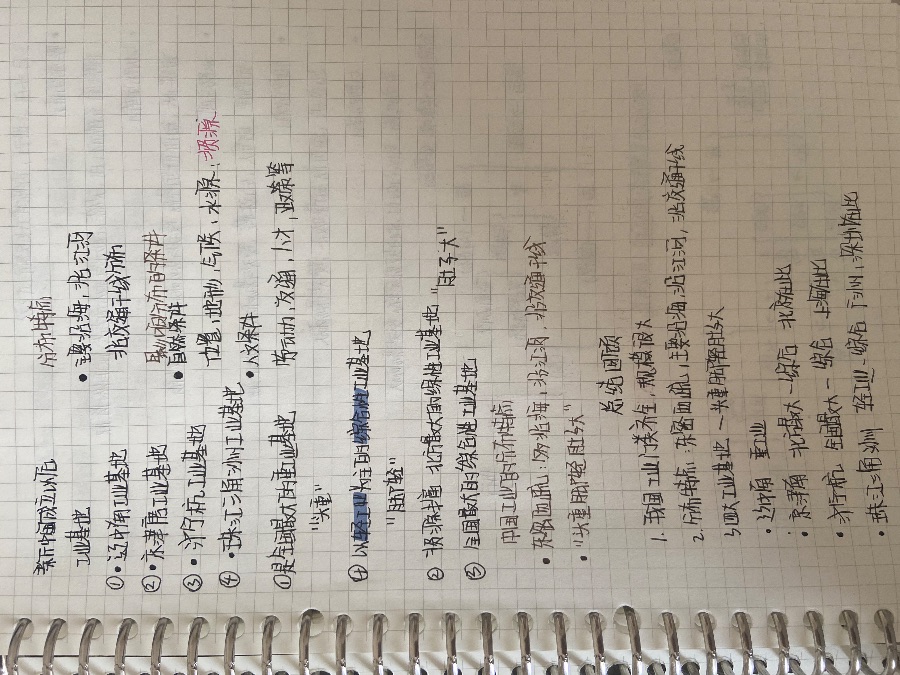 新中国成立以后 分布特征
工业基地 • 主要沿海,沿江河
①• 辽中南工业基地 北交通干线分布
②• 京津唐工业基地 影响分布的条件
• 自然条件
③• 沪宁杭工业基地 位置,地形,气候,水源,资源
④• 珠江三角洲工业基地 • 人文条件
①是全国最大的重业基地 劳动力,交通,人才,政策等
"头重"
④ 以轻工业为主的综合性工业基地
"脚轻"
② 资源丰富 北方最大的综合性工业基地
③ 全国最大的综合性工业基地 "肚子大"
中国工业的分布特点
• 东密西疏:沿海,沿江河,北交通干线
• "头重脚轻肚子大"
总结回顾
1. 我国工业门类齐全,规模很大
2. 分布特点:东密西疏,主要沿海,沿江河,沿交通干线
四大工业基地 — 头重脚轻肚子大
• 辽中南 重工业
• 京津唐 北方最大—综合 北京在此
• 沪宁杭 全国最大—综合 上海在此
• 珠江三角洲 轻工业,综合 广州,深圳在此